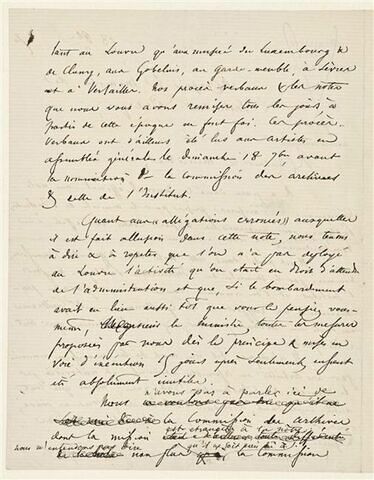 tant au Louvre qu'aux musées du Luxembourg &
de Cluny, aux Gobelins, au garde-meuble, à Sèvres
et à Versailles. Nos procès verbaux & les notes
que nous vous avons remises tous les jours à
partir de cette époque en font foi. Ces procès-
verbaux ont d'ailleurs été lus aux artistes en
assemblée générale le dimanche 18 7bre avant
la nomination de la Commission des archives
& celle de l'Institut.
Quant aux « allégations erronées » auxquelles
il est fait allusion dans cette note, nous tenons
à dire & à répéter que l'on n'a pas déployé
au Louvre l'activité qu'on était en droit d'attendre
de l'administration et que, si le bombardement
avait eu lieu aussi tôt que vous le pensiez vous-
même, le ministre, toutes les mesures
proposées par nous dès le principe & mises en
voie d'exécution 15 jours après seulement, eussent
été absolument inutiles.
n'avons pas à parler ici de
Nous
la Commission des archives
est étrangère à la nôtre
dont la mission
nous n'entendons pas dire qu'il
non plus la Commission